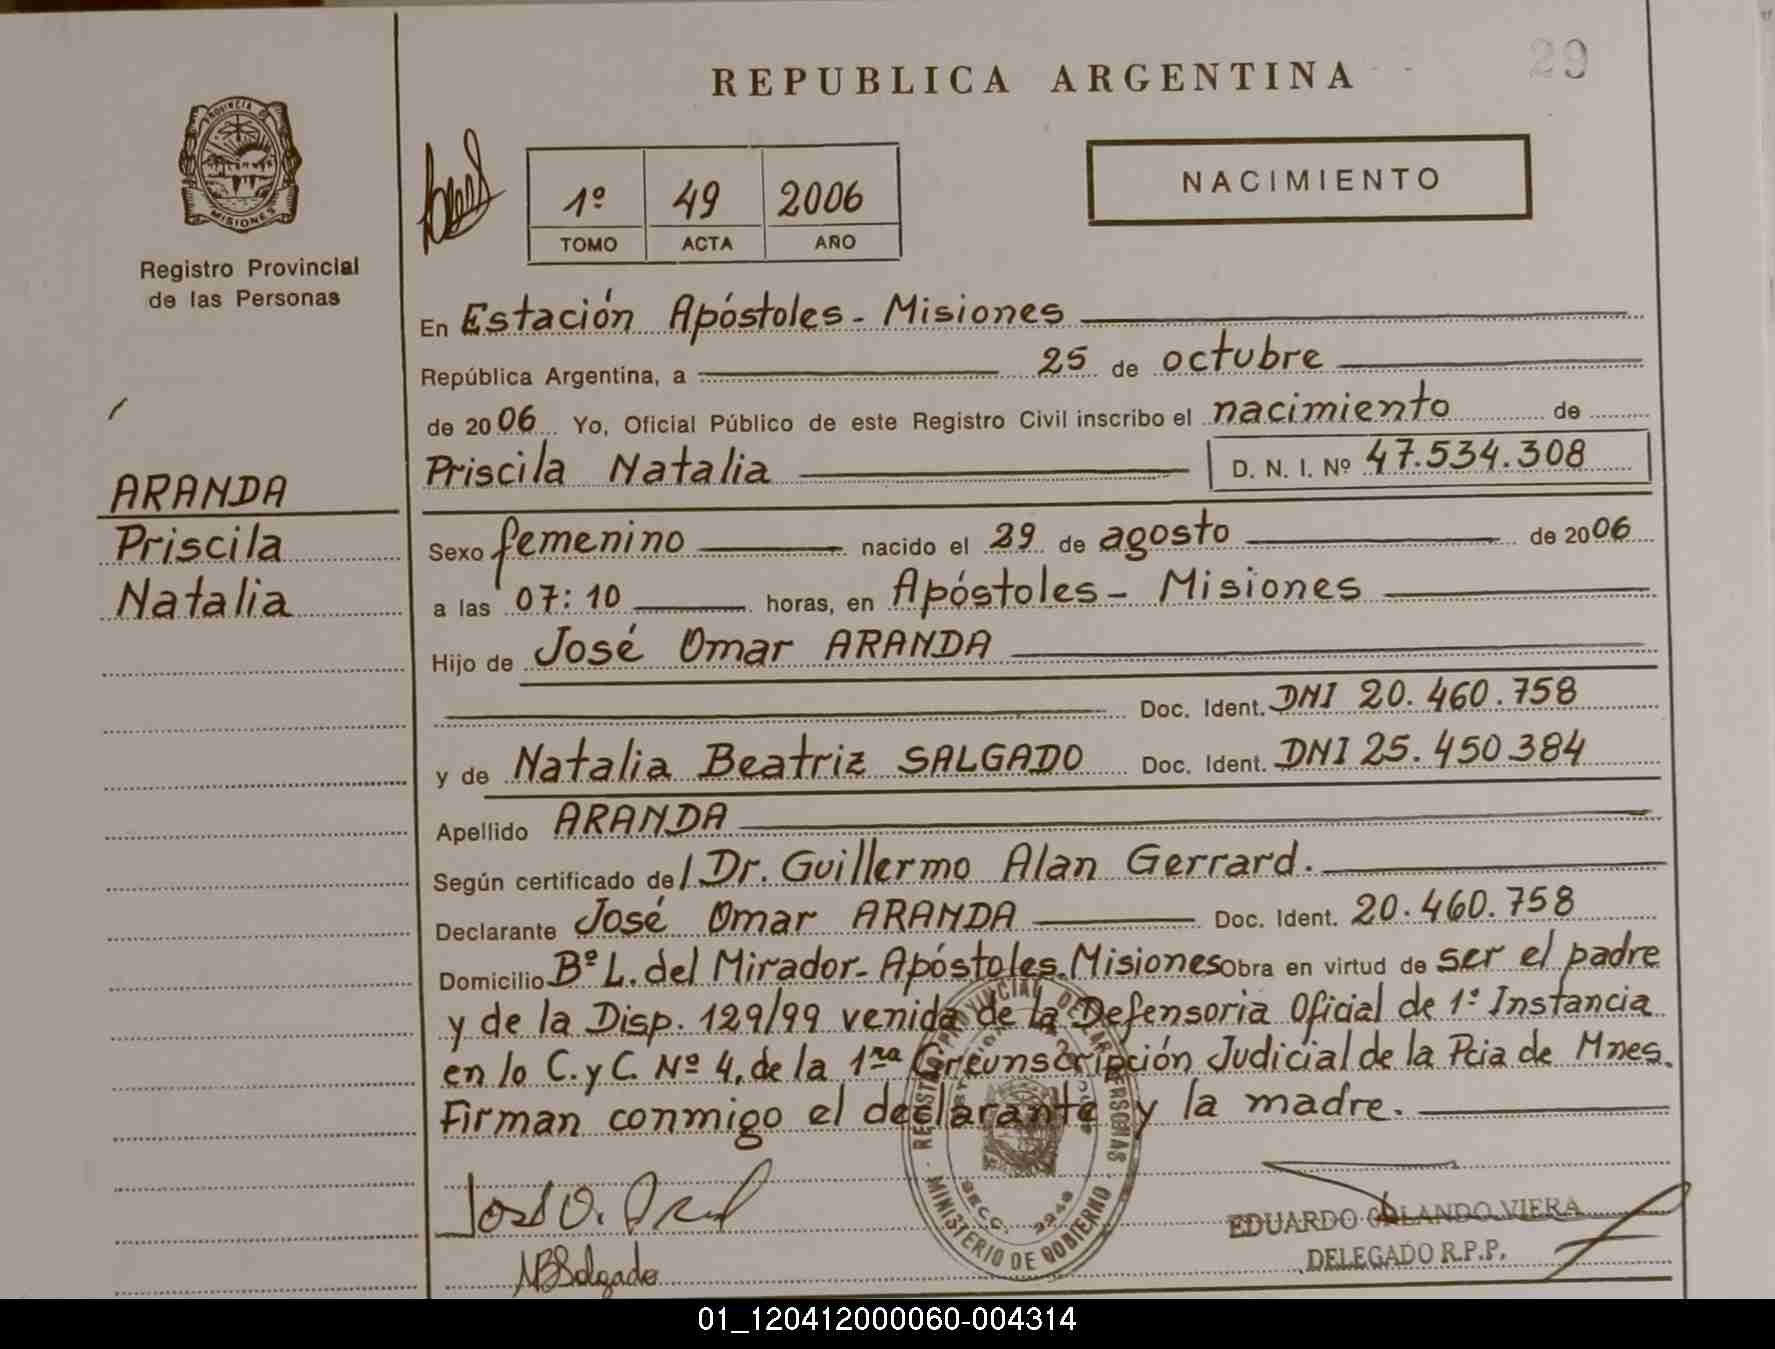 REPUBLICA ARGENTINA
29
PROVINCIA
MISIONES
Registro Provincial
de las Personas
1º 49 2006
TOMO ACTA AÑO
NACIMIENTO
En Estación Apóstoles - Misiones
República Argentina, a 25 de octubre
de 2006 Yo, Oficial Público de este Registro Civil inscribo el nacimiento de
Priscila Natalia D. N. I. Nº 47.534.308
ARANDA
Priscila
Natalia
Sexo femenino nacido el 29 de agosto de 2006
a las 07:10 horas, en Apóstoles - Misiones
Hijo de José Omar ARANDA
Doc. Ident. DNI 20.460.758
y de Natalia Beatriz SALGADO Doc. Ident. DNI 25.450.384
Apellido ARANDA
Según certificado del Dr. Guillermo Alan Gerrard.
Declarante José Omar ARANDA Doc. Ident. 20.460.758
Domicilio Bº L. del Mirador - Apóstoles. Misiones Obra en virtud de ser el padre
y de la Disp. 129/99 venida de la Defensoria Oficial de 1º Instancia
en lo C. y C. Nº 4, de la 1ra Circunscripción Judicial de la Pcia de Mnes.
Firman conmigo el declarante y la madre.
REGISTRO PROVINCIAL DE LAS PERSONAS
MINISTERIO DE GOBIERNO
José O.
NBSalgado
EDUARDO ORLANDO VIERA
DELEGADO R.P.P.
01_120412000060-004314